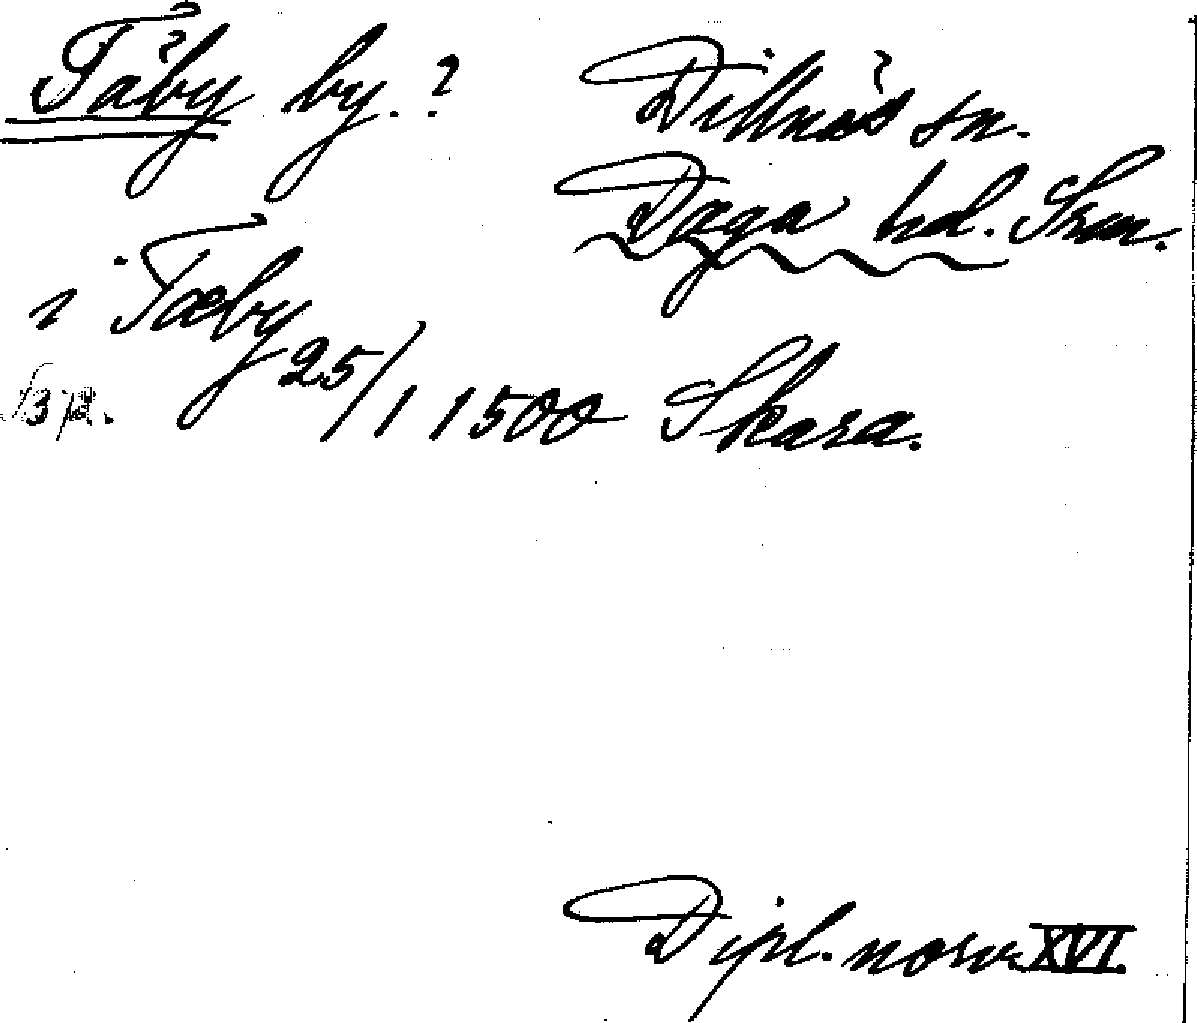 Täby by.? Dillnäs sn.
Daga hd. Srm.
i Tæby 25/1 1500 Skara.
s. 372.
Dipl. norv. XVI.